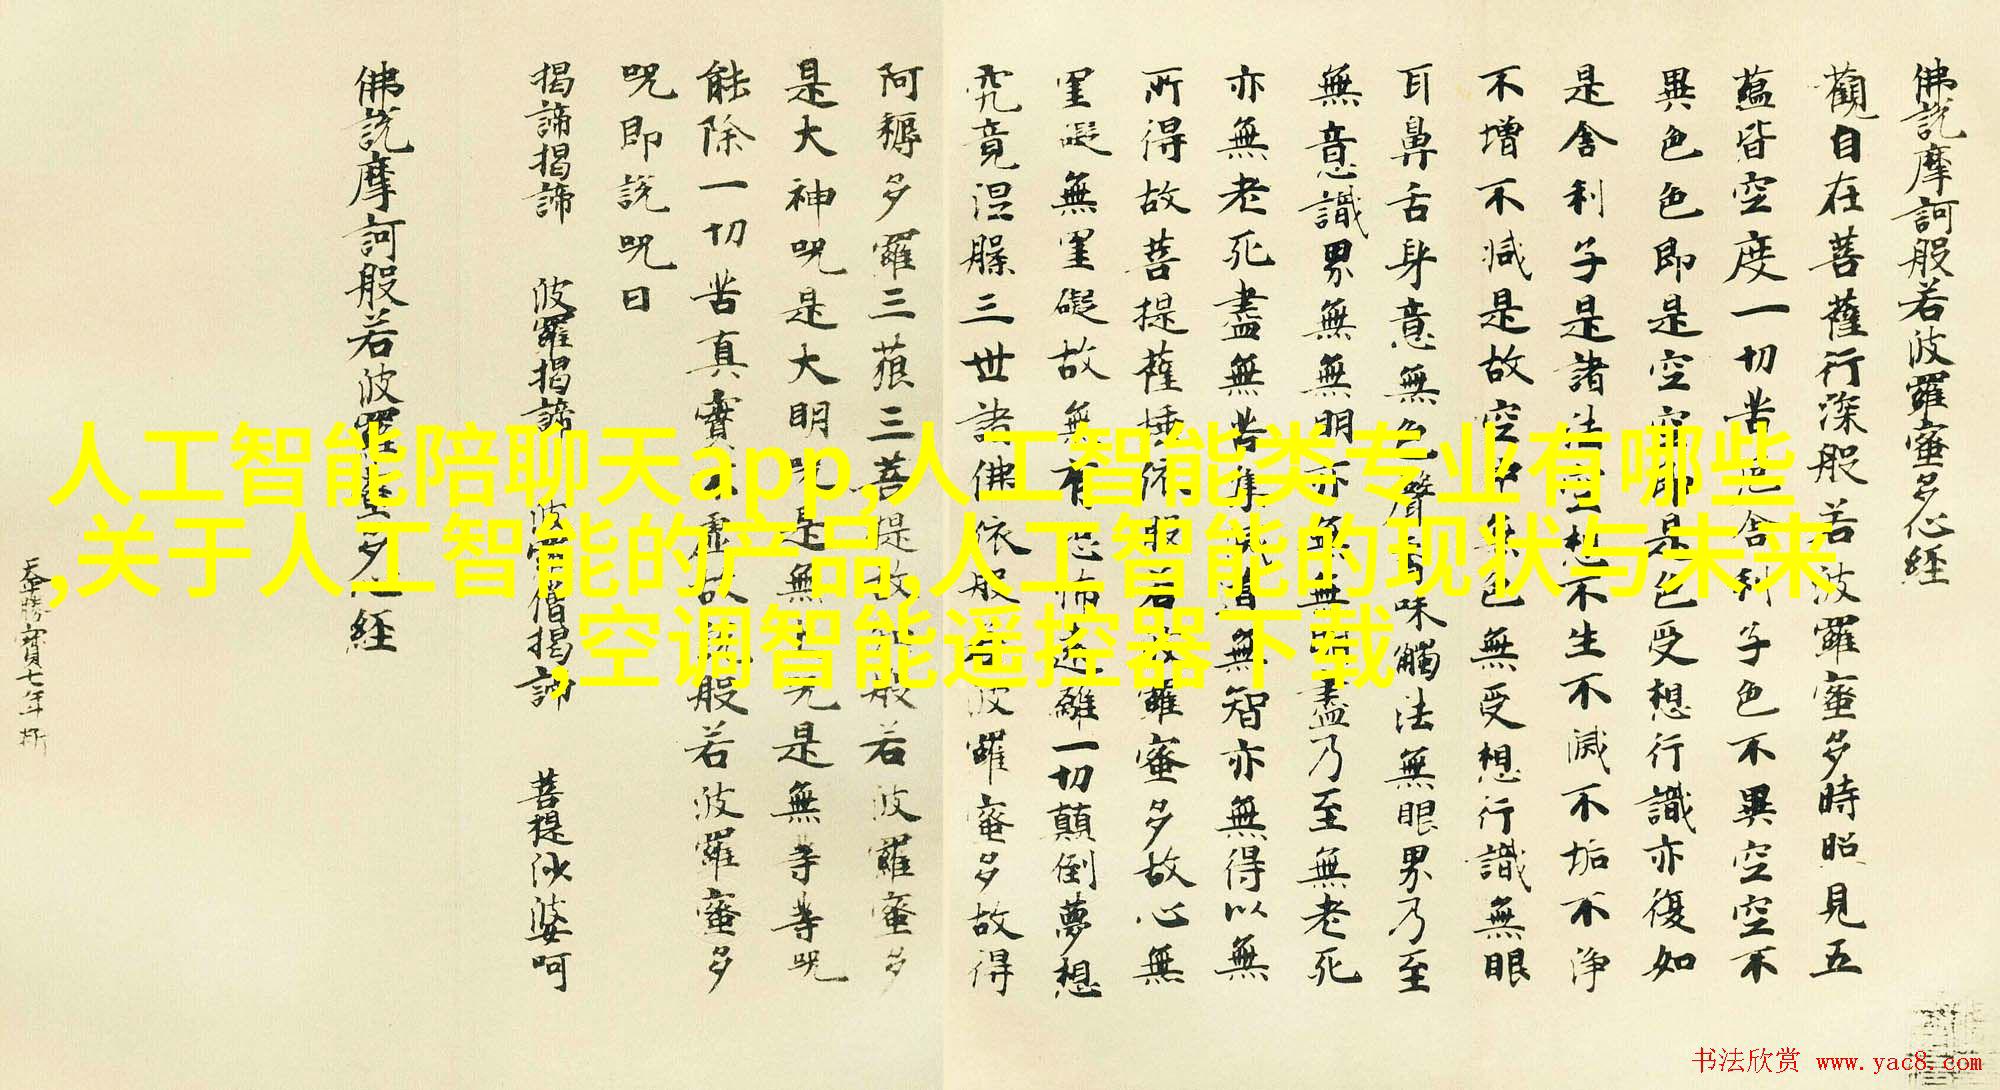 佛說摩訶般若波羅蜜多心経
觀自在菩薩行深般若波羅蜜多時照見五
蘊皆空度一切苦厄舍利子色不異空空不
異色色即是空空即是色受想行識亦復如
是舍利子是諸法空相不生不滅不垢不淨
不增不減是故空中無色無受想行識無眼
耳鼻舌身意無色聲香味觸法無眼界乃至
無意識界無無明亦無無明盡乃至無老死
亦無老死盡無苦集滅道無智亦無得以無
所得故菩提薩埵依般若波羅蜜多故心無
罣礙無罣礙故無有恐怖遠離一切顛倒夢想
究竟涅槃三世諸佛依般若波羅蜜多故得
阿耨多羅三藐三菩提故知般若波羅蜜多
是大神呪是大明呪是無上呪是無等等呪
能除一切苦真實不虛故說般若波羅蜜多
呪即說呪曰
揭諦揭諦 波羅揭諦 波羅僧揭諦 菩提沙婆呵
佛說摩訶般若波羅蜜多心経
勝寳七年
人工智能陪聊天app,人工智能类专业有哪些
,关于人工智能的产品,人工智能的现状与未来
,空调智能遥控器下载
书法欣赏 www.yac8.com